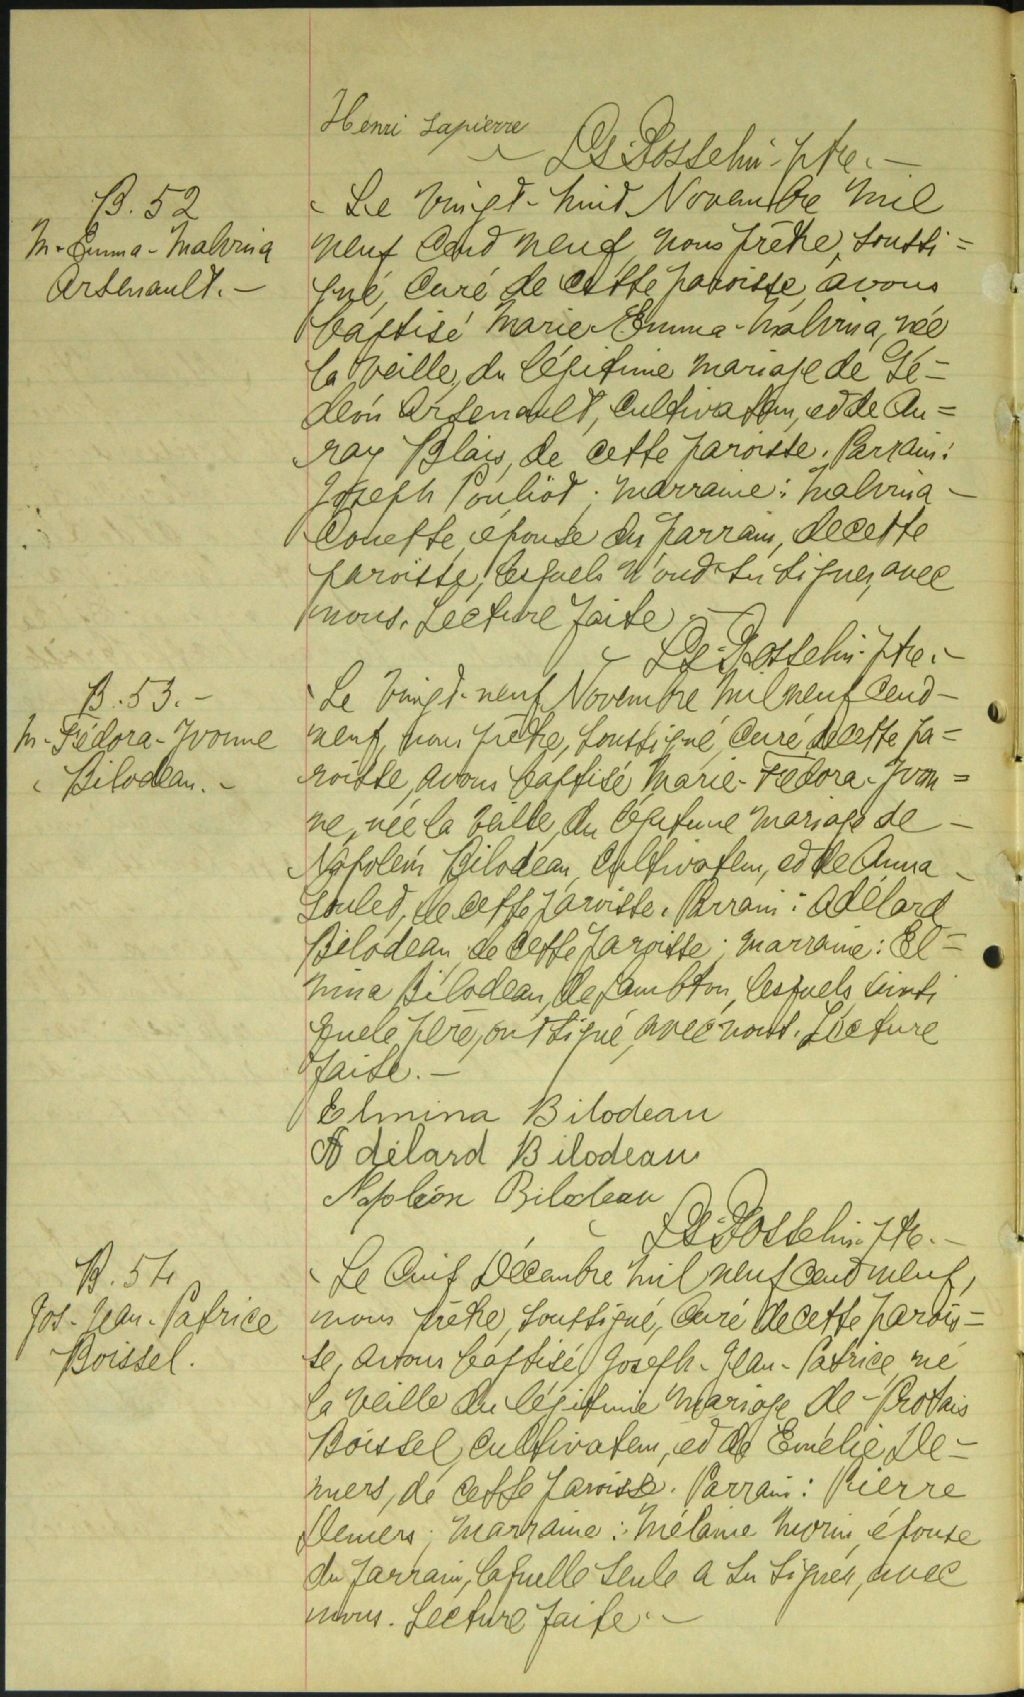 Henri Lapierre
Ls. Gosselin ptre.—
B. 52
M-Emma-Malvina
Arsenault.—
Le vingt-huit Novembre mil
neuf cent neuf, nous prêtre, soussi=
gné, curé de cette paroisse, avons
baptisé Marie-Emma-Malvina, née
la veille, du légitime mariage de Gé=
déon Arsenault, cultivateur, et de Au=
ray Blais, de cette paroisse. Parrain:
Joseph Pouliot; marraine: Malvina
Couette, épouse du parrain, de cette
paroisse, lesquels n'ont su signer, avec
nous. Lecture faite.—
Ls. Gosselin ptre.—
B. 53.—
M-Fédora-Yvonne
Bilodeau.—
Le vingt-neuf Novembre mil neuf cent-
neuf, nous prêtre, soussigné, curé de cette pa=
roisse, avons baptisé Marie-Fédora-Yvon=
ne, née la veille, du légitime mariage de
Napoléon Bilodeau, cultivateur, et de Anna
Goulet, de cette paroisse. Parrain: Adélard
Bilodeau, de cette paroisse; marraine: El=
mina Bilodeau, de Lambton, lesquels ainsi
que le père, ont signé, avec nous. Lecture
faite.—
Elmina Bilodeau
Adélard Bilodeau
Napléon Bilodeau
Ls. Gosselin ptre.—
B. 54
Jos-Jean-Patrice
Boissel.
Le Cinq Décembre mil neuf cent neuf,
nous prêtre, soussigné, curé de cette parois=
se, avons baptisé Joseph-Jean-Patrice, né
la veille du légitime mariage de Protais
Boissel, cultivateur, et de Emélie De=
mers, de cette paroisse. Parrain: Pierre
Demers; marraine: Mélanie Morin, épouse
du parrain, laquelle seule a su signer, avec
nous. Lecture faite.—